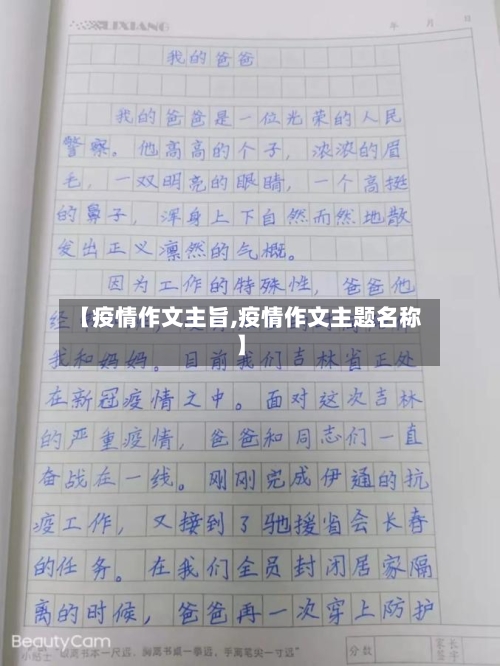 LIXIANG
年 月 日
我的爸爸
我的爸爸是一位光荣的人民
警察。他高高的个子，浓浓的眉
毛，一双明亮的眼睛，一个高挺
的鼻子，浑身上下自然而然地散
发出正义凛然的气概。
因为工作的特殊性，爸爸他
经
【疫情作文主旨,疫情作文主题名称
】
我和妈妈。目前我们吉林省正处
在新冠疫情之中。面对这次吉林
的严重疫情，爸爸和同志们一直
奋战在一线。刚刚完成伊通的抗
疫工作，又接到了驰援省会长春
的任务。在我们全员封闭居家隔
离的时候，爸爸再一次穿上防护
BeautyCam
小贴士 眼离书本一尺远，胸离书桌一拳远，手离笔尖一寸远
分数
家长
签字